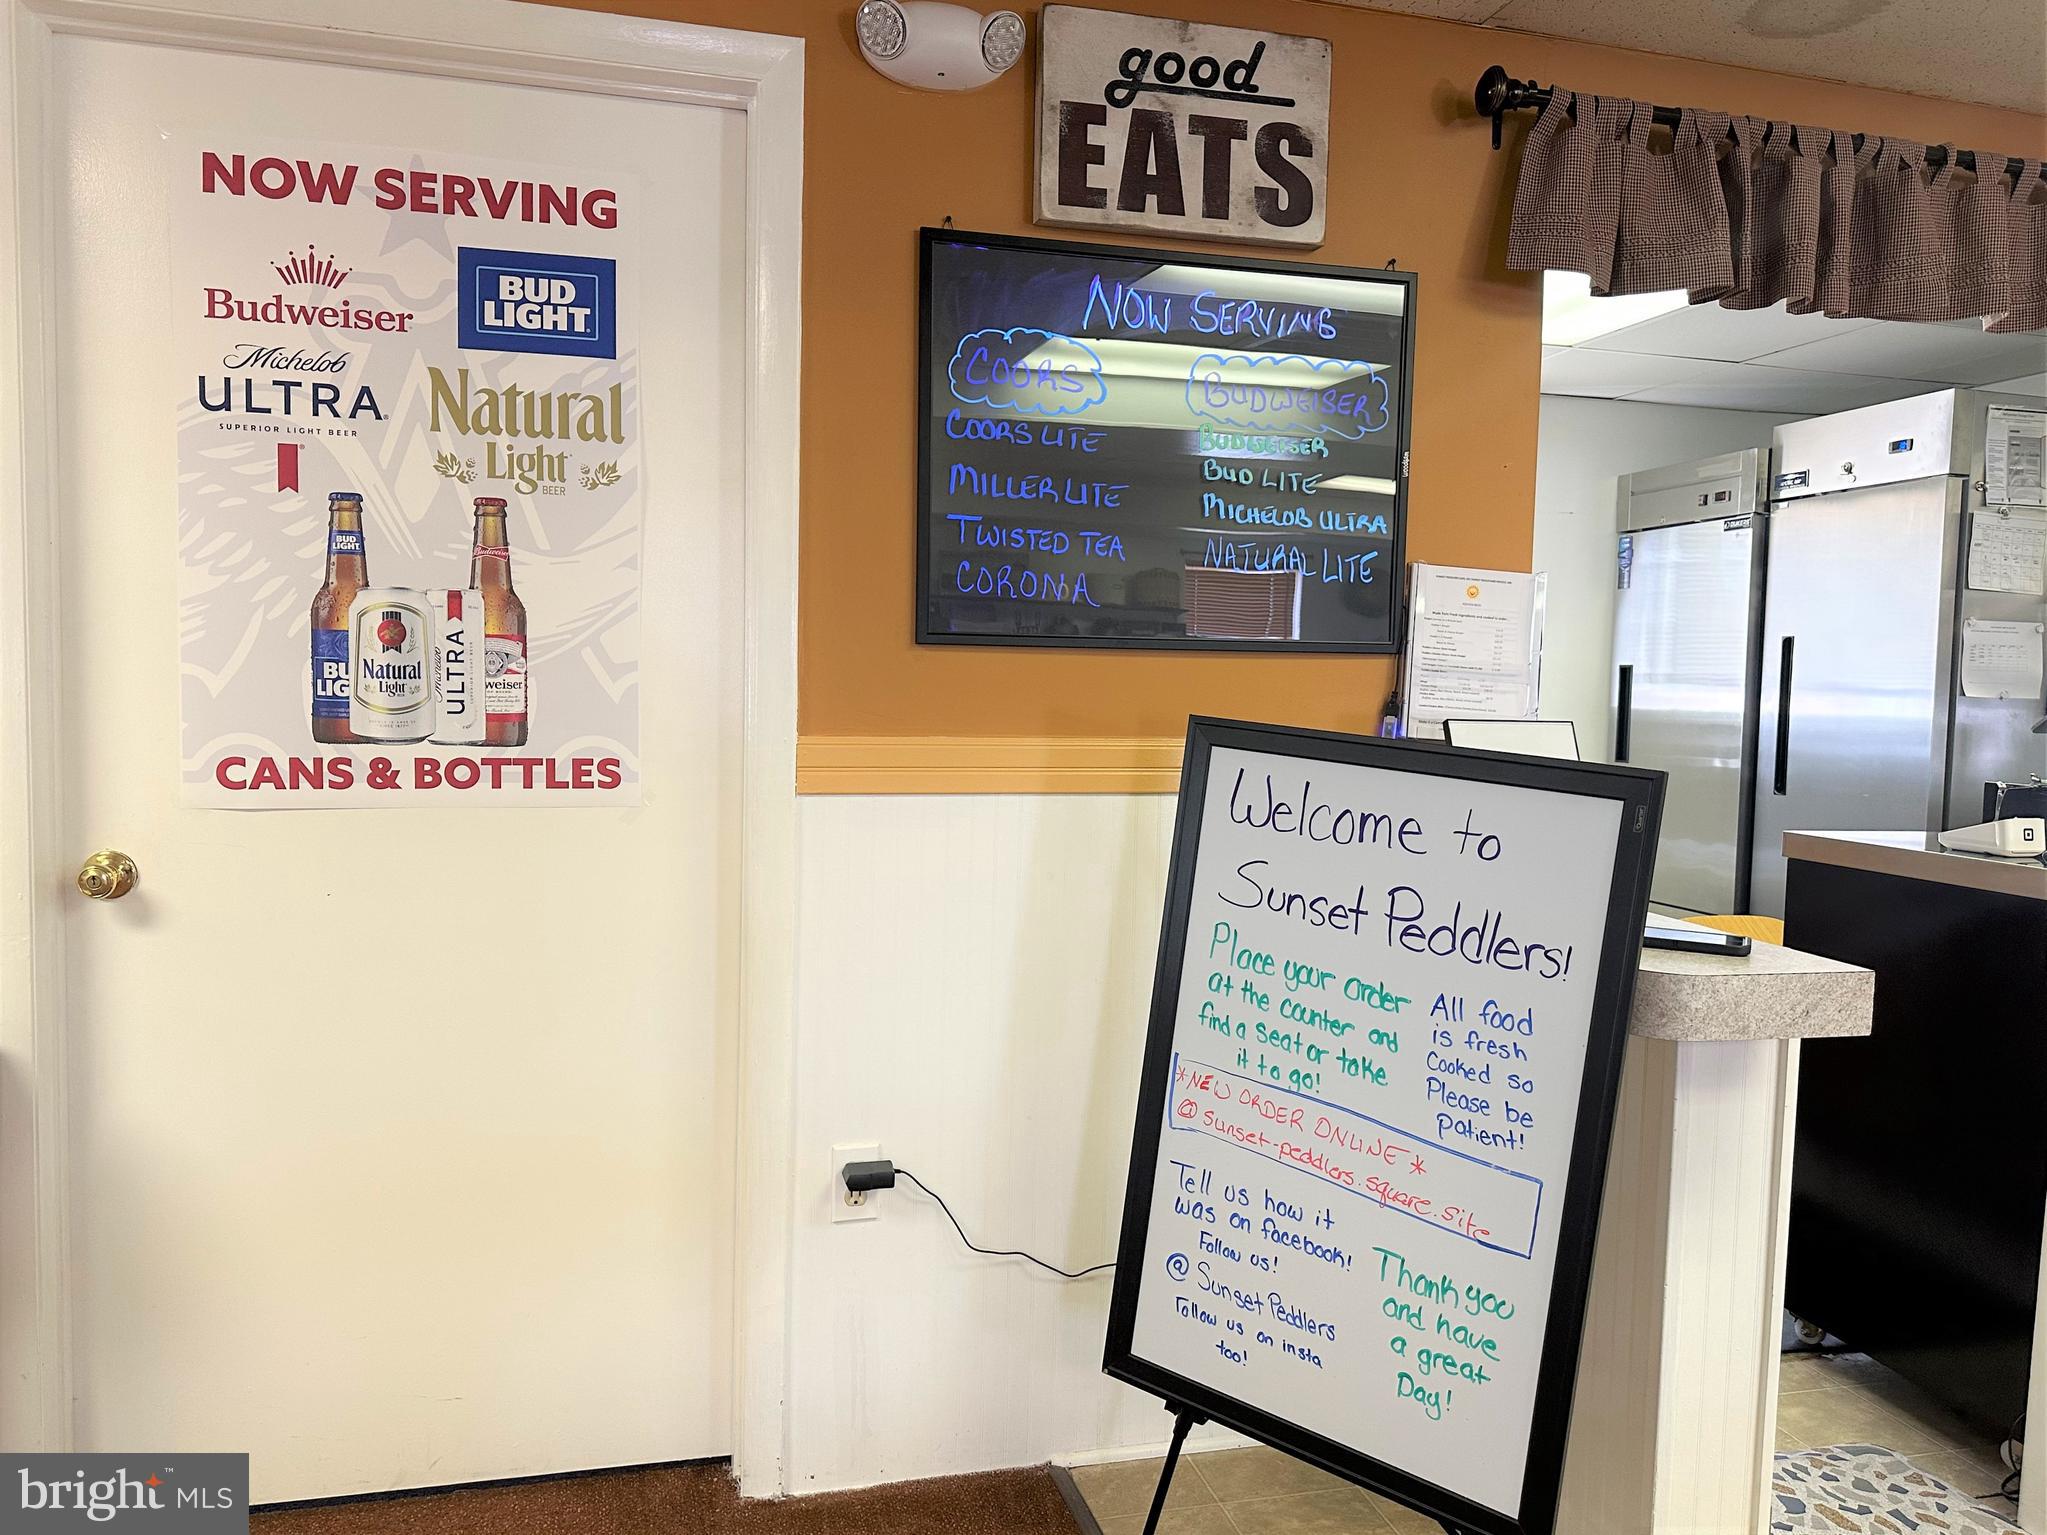 NOW SERVING
Budweiser
BUD
LIGHT
Michelob
ULTRA
SUPERIOR LIGHT BEER
Natural
Light
BEER
BUD
LIGHT
Budweiser
BU
LIG
Natural
Light
Michelob
ULTRA
weiser
CANS & BOTTLES
good
EATS
NOW SERVING
COORS
COORS LITE
MILLER LITE
TWISTED TEA
CORONA
BUDWEISER
BUDWEISER
BUD LITE
MICHELOB ULTRA
NATURAL LITE
Welcome to
Sunset Peddlers!
Place your order
at the counter and
find a seat or take
it to go!
All food
is fresh
Cooked so
Please be
patient!
*NEW ORDER ONLINE*
@ sunset-peddlers.square.site
Tell us how it
was on facebook!
Follow us!
@ Sunset Peddlers
Follow us on insta
too!
Thank you
and have
a great
Day!
bright MLS